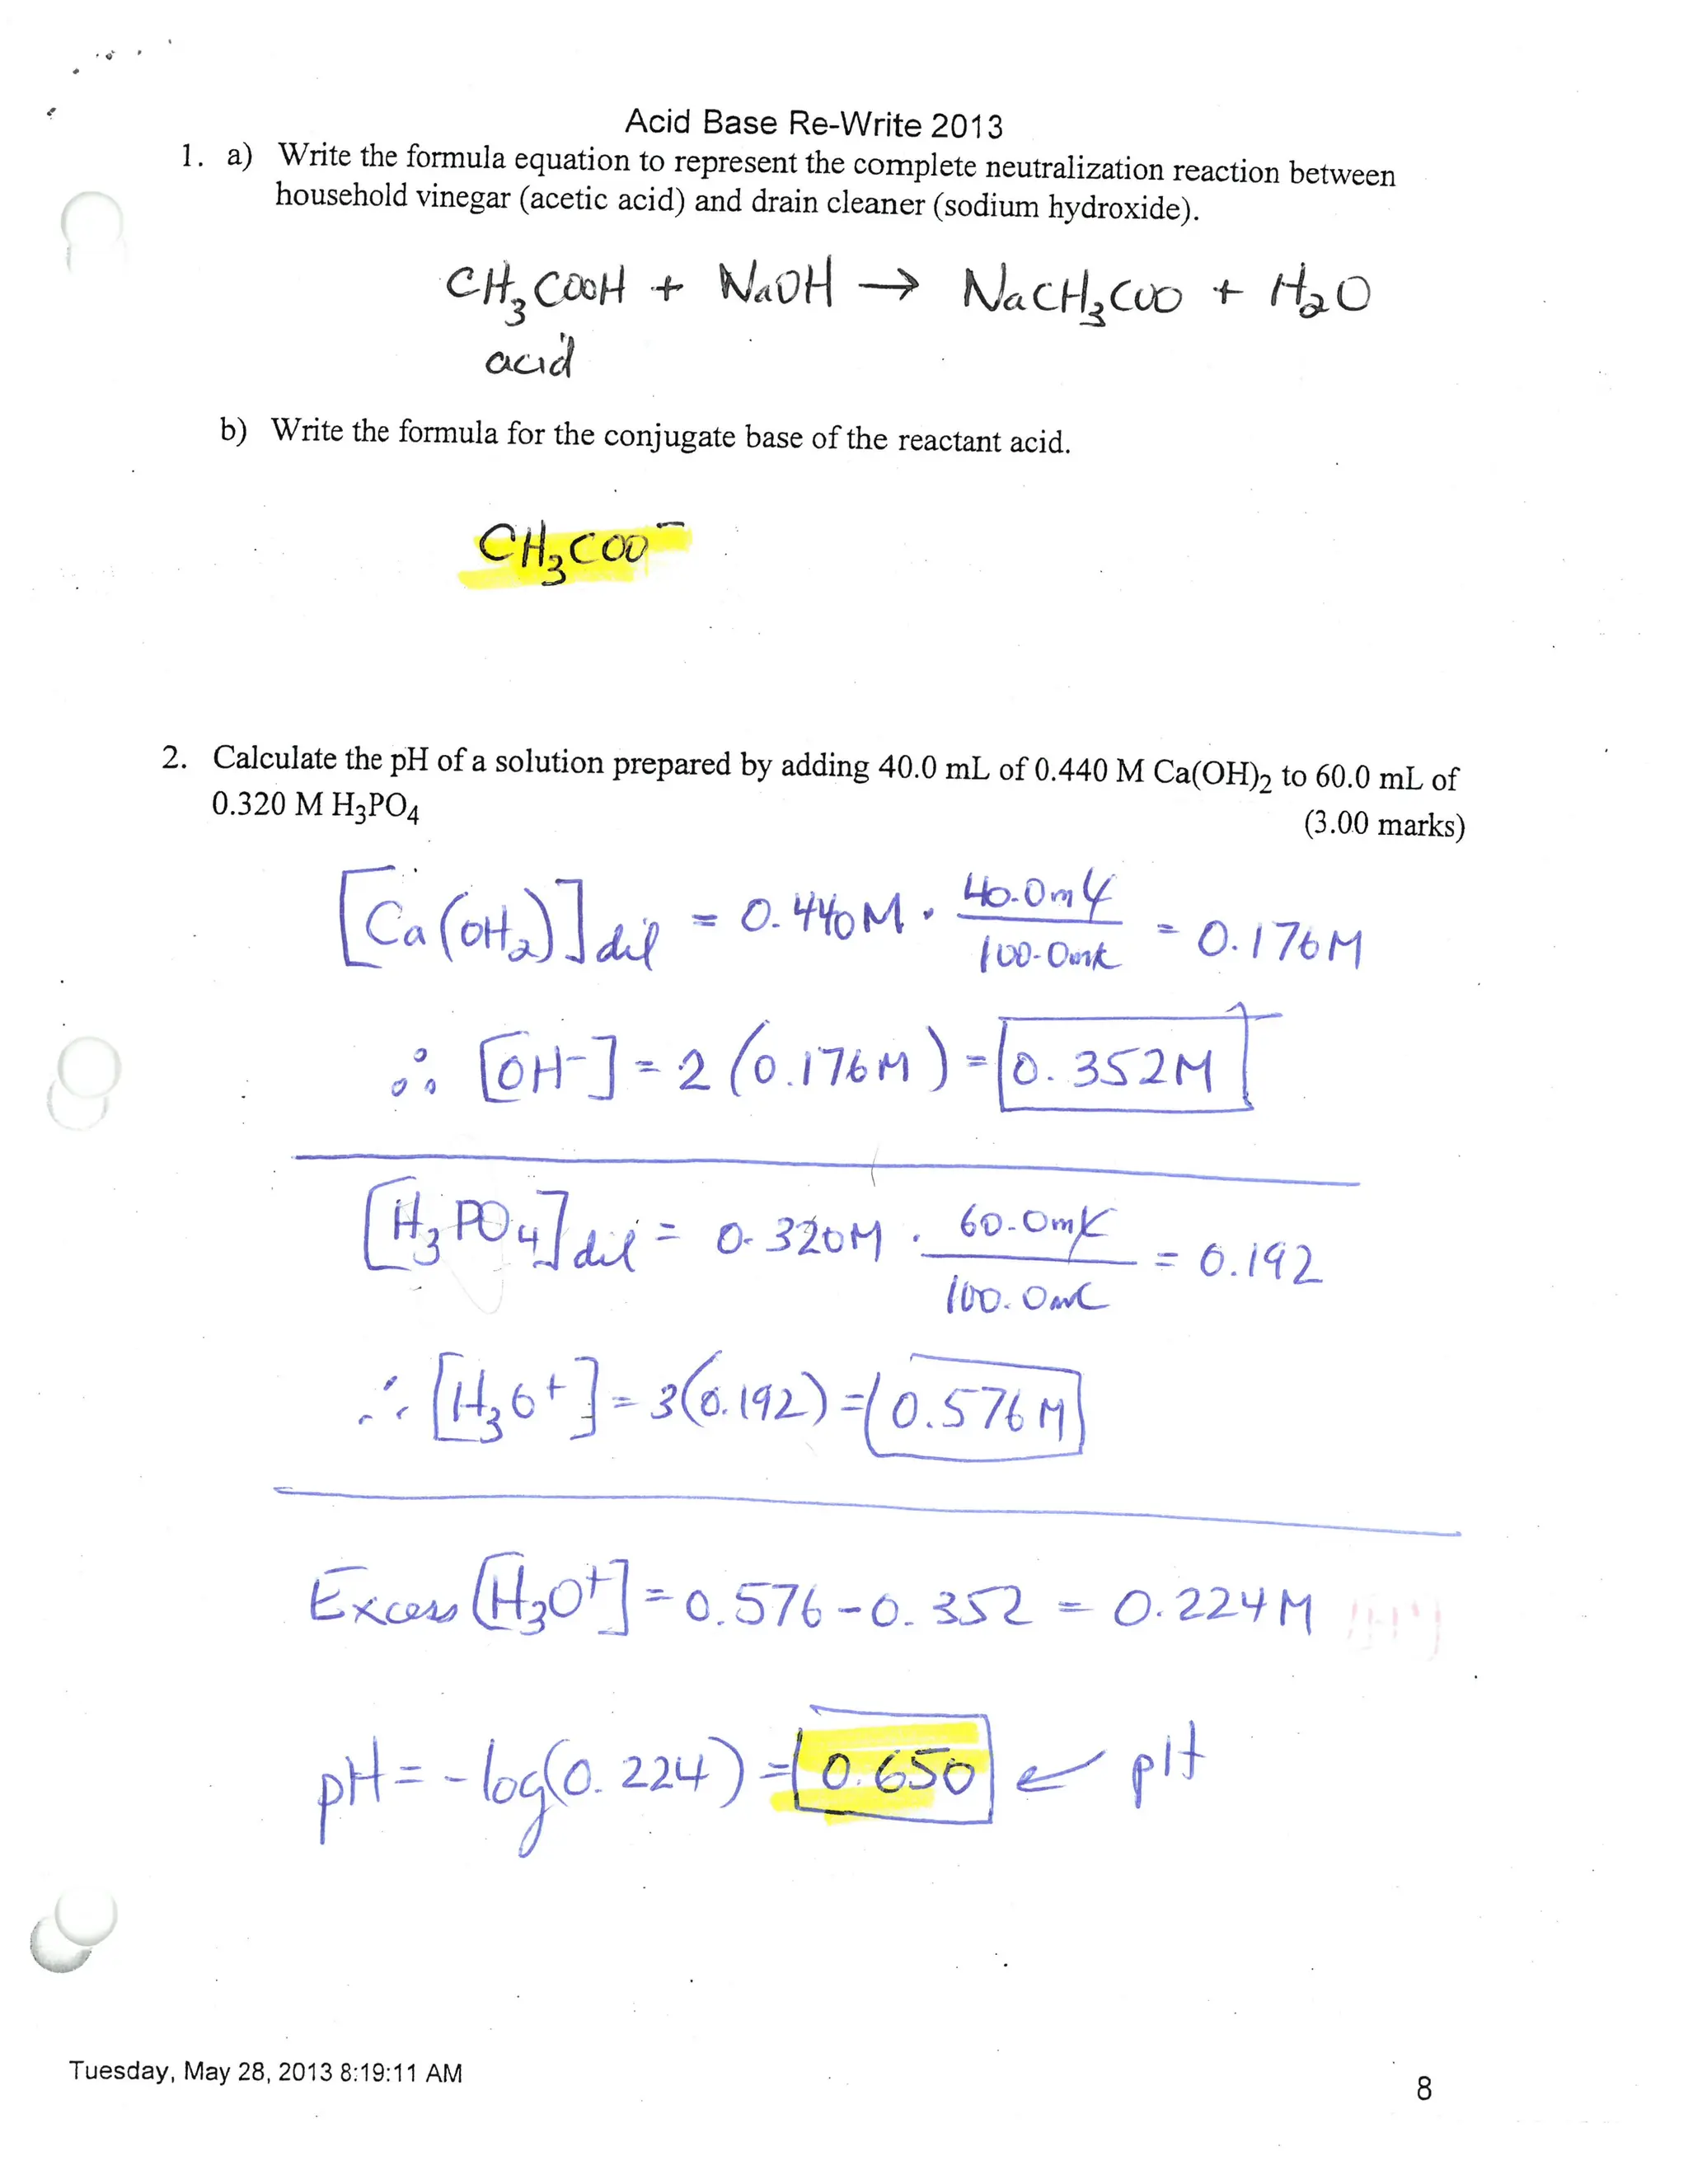 Acid Base Re-Write 2013
1. a) Write the formula equation to represent the complete neutralization reaction between
household vinegar (acetic acid) and drain cleaner (sodium hydroxide).
CH₃COOH + NaOH → NaCH₃COO + H₂O
acid
b) Write the formula for the conjugate base of the reactant acid.
CH₃COO⁻
2. Calculate the pH of a solution prepared by adding 40.0 mL of 0.440 M Ca(OH)₂ to 60.0 mL of
0.320 M H₃PO₄
(3.00 marks)
[Ca(OH₂)]dil = 0.440M · 40.0mL / 100.0mL = 0.176M
∴ [OH⁻] = 2 (0.176M) = 0.352M
[H₃PO₄]dil = 0.320M · 60.0mL / 100.0mL = 0.192
∴ [H₃O⁺] = 3(0.192) = 0.576M
Excess [H₃O⁺] = 0.576 - 0.352 = 0.224M
pH = -log(0.224) = 0.650 ← pH
Tuesday, May 28, 2013 8:19:11 AM
8